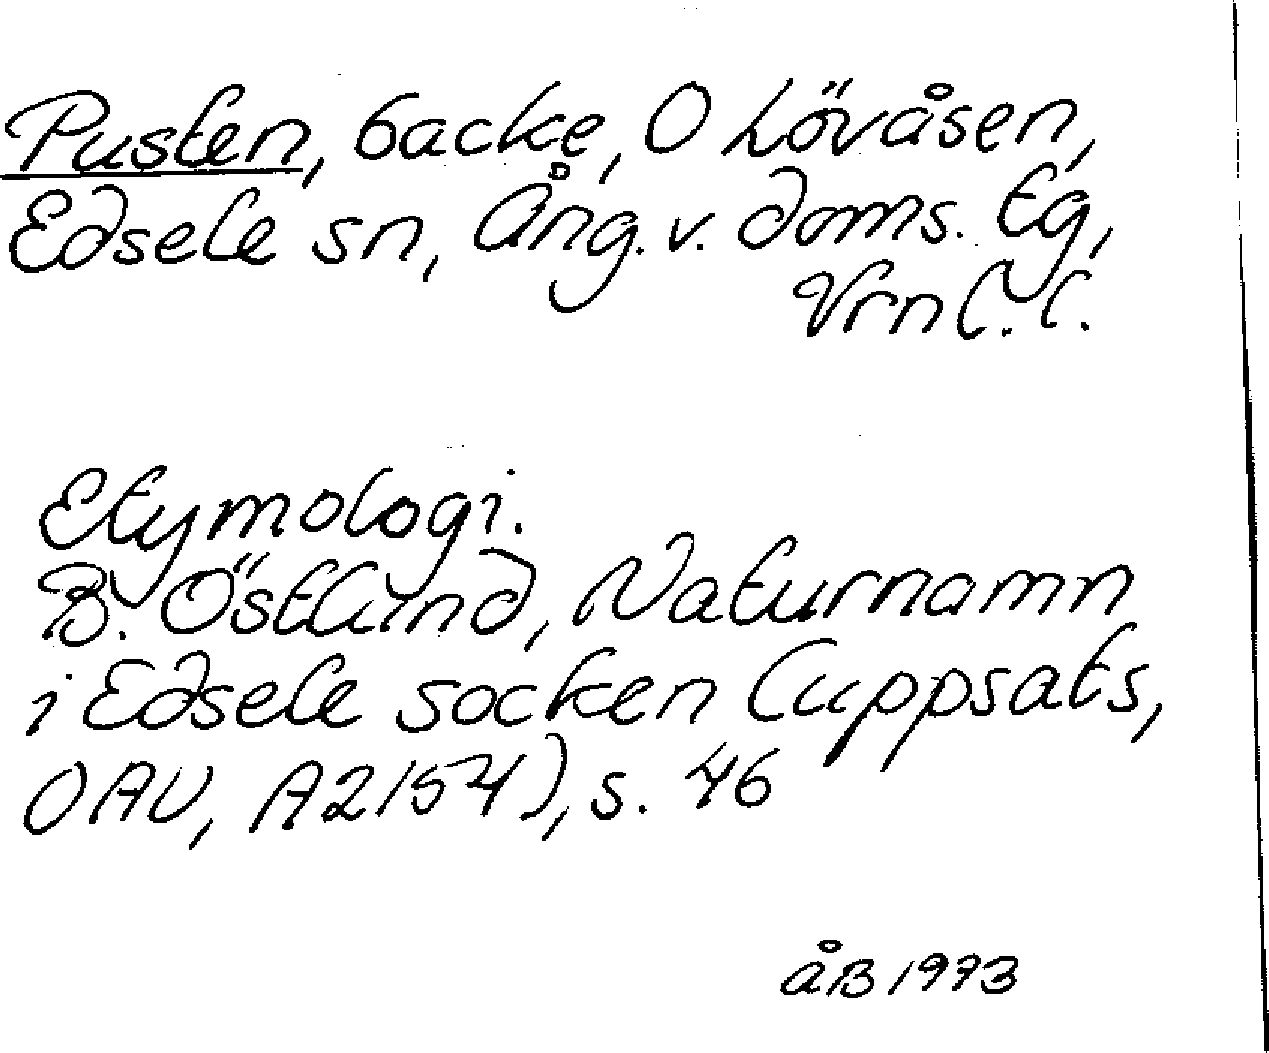 Pusten, backe, O Lövåsen,
Edsele sn, Ång. v. doms. tg,
Vrnl. l.
Etymologi.
B. Östlund, Naturnamn
i Edsele socken (uppsats,
OAU, A2154), s. 46
ÅB 1973